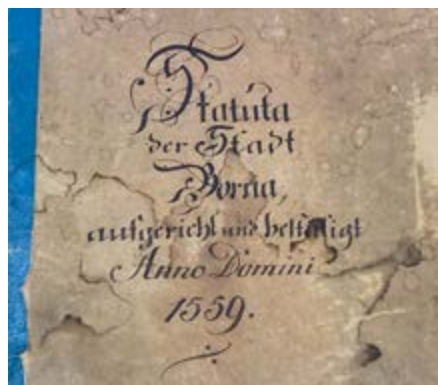 Statuta
der Stadt
Borna,
aufgericht und bestätigt
Anno Domini
1559.